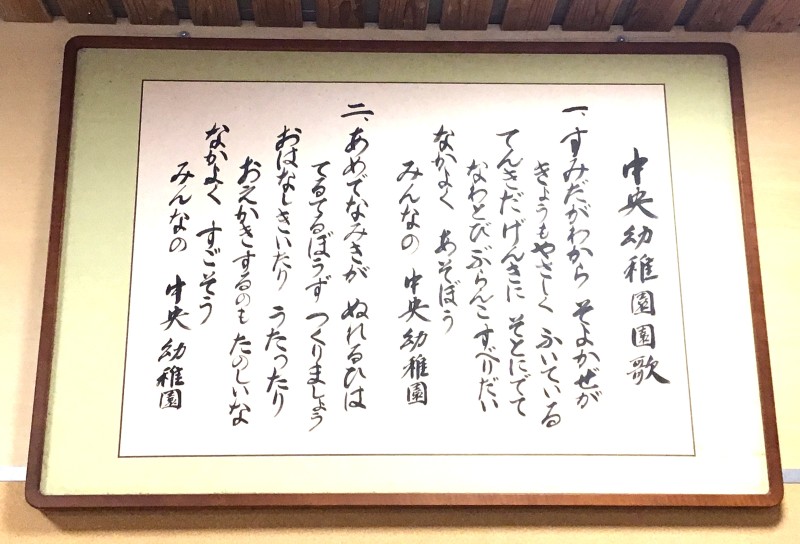 中央幼稚園園歌
一、すみだがわから そよかぜが
きょうもやさしく ふいている
てんきだげんきに そとにでて
なわとびぶらんこすべりだい
なかよく あそぼう
みんなの 中央幼稚園
二、あめでなみきが ぬれるひは
てるてるぼうず つくりましょう
おはなしきいたり うたったり
おえかきするのも たのしいな
なかよく すごそう
みんなの 中央幼稚園